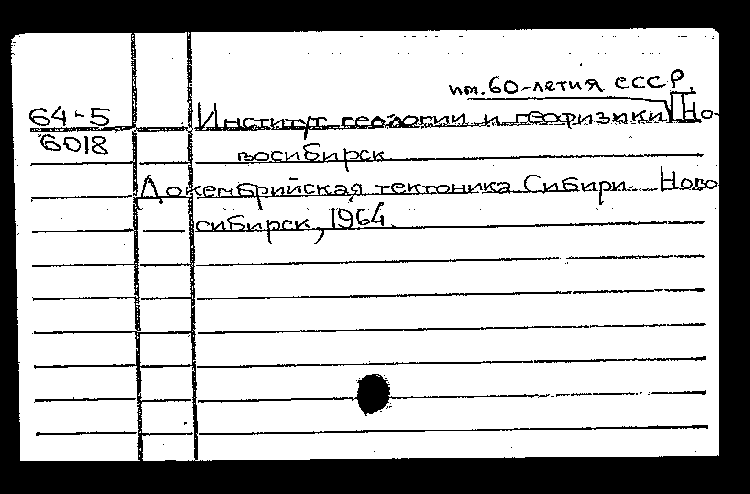 им. 60-летия СССР.
64-5 Институт геологии и геофизики Но-
6018 восибирск
Докембрийская тектоника Сибири. Ново
сибирск, 1964.